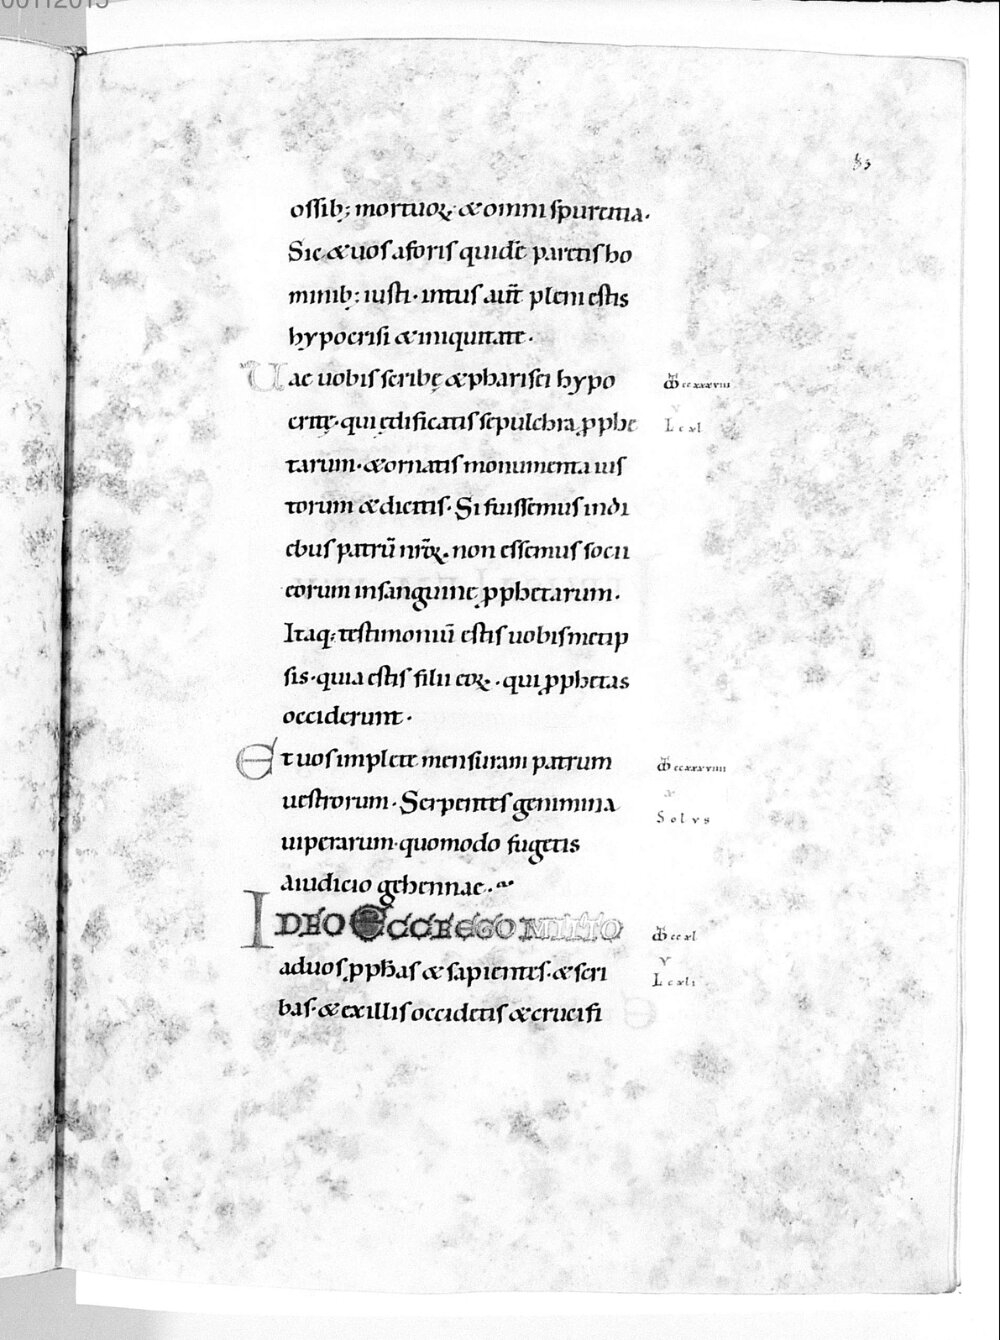 00112015
85
ossib; mortuoꝝ · & omni spurcitia ·
Sic & uos a foris quidē paretis ho
minib; iusti · intus aut̄ pleni estis
hypocrisi & iniquitate ·
Uae uobis scribę & pharisei hypo
critę · qui ędificatis sepulchra ꝓphe
tarum · & ornatis monumenta ius
torum & dicitis · Si fuissemus in di
ebus patrū nr̄oꝝ · non essemus socii
eorum in sanguine ꝓphetarum ·
Itaq; testimoniū estis uobismetip
sis · quia estis filii eoꝝ · qui ꝓphetas
occiderunt ·
Et uos implete mensuram patrum
uestrorum · Serpentes genimina
uiperarum · quomodo fugetis
a iudicio gehennae ·
IDEO ECCE EGO MITTO
ad uos ꝓph̄as & sapientes · & scri
bas · & ex illis occidetis & crucifi
ccxxxviii
v
L cxl
ccxxxviiii
x
Solvs
ccxl
v
L cxli